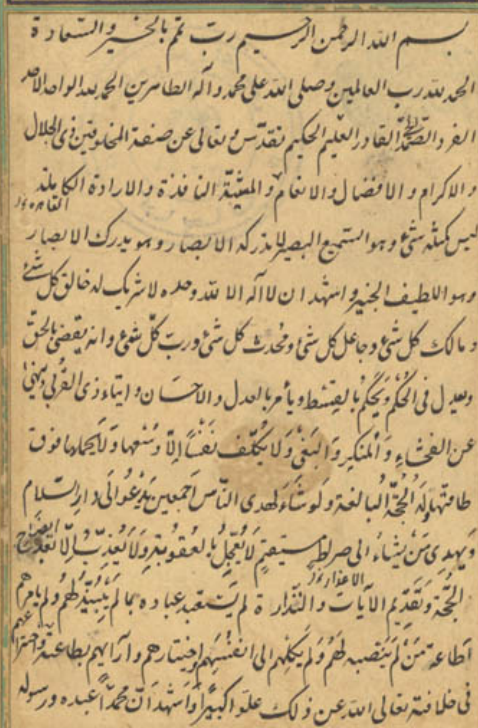 بسم الله الرحمن الرحيم رب تمم بالخير والسعادة
الحمد لله رب العالمين وصلى الله على محمد وآله الطاهرين الحمد لله الواحد الاحد
الفرد الصمد القادر العليم الحكيم تقدس وتعالى عن صفة المخلوقين ذى الجلال
والاكرام والافضال والانعام والمشيّة النافذة والارادة الكاملة
القاهرة
ليس كمثله شئ وهو السميع البصير لا يدركه الابصار وهو يدرك الابصار
وهو اللطيف الخبير واشهد ان لا اله الا الله وحده لا شريك له خالق كل شئ
ومالك كل شئ وجاعل كل شئ ومحدث كل شئ ورب كل شئ وانه يقضى بالحق
ويعدل فى الحكم ويحكم بالقسط ويأمر بالعدل والاحسان وايتاء ذى القربى وينهى
عن الفحشاء والمنكر والبغى ولا يكلف نفسا الا وسعها ولا يحملها فوق
طاقتها وله الحجة البالغة ولو شاء لهدى الناس اجمعين يدعو الى دار السلام
ويهدى من يشاء الى صراط مستقيم لا يعجل بالعقوبة ولا يعذب الا بعد ايضاح
الحجة وتقديم الآيات والنذارة لم يستعبد عباده بما لم يبينه لهم ولم يامرهم
اطاعة من لم ينصبه لهم ولم يكلهم الى انفسهم واختيارهم وآرائهم بطاعته واختراعهم
فى خلافته تعالى الله عن ذلك علوا كبيرا واشهد ان محمدا عبده ورسوله